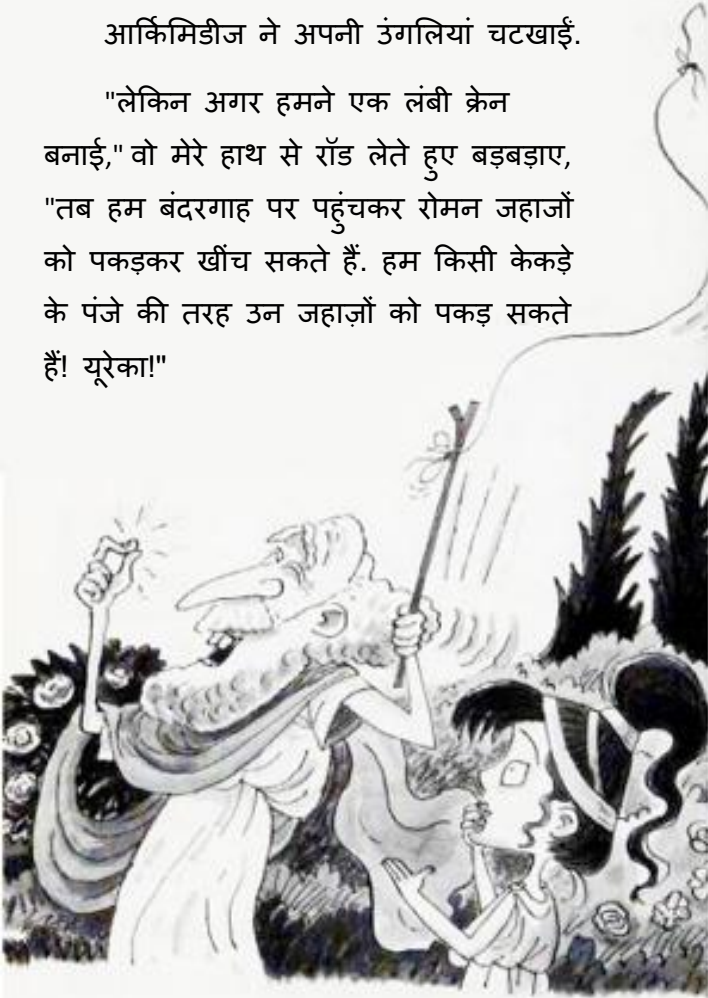 आर्किमिडीज ने अपनी उंगलियां चटखाईं.
"लेकिन अगर हमने एक लंबी क्रेन
बनाई," वो मेरे हाथ से रॉड लेते हुए बड़बड़ाए,
"तब हम बंदरगाह पर पहुंचकर रोमन जहाजों
को पकड़कर खींच सकते हैं. हम किसी केकड़े
के पंजे की तरह उन जहाज़ों को पकड़ सकते
हैं! यूरेका!"